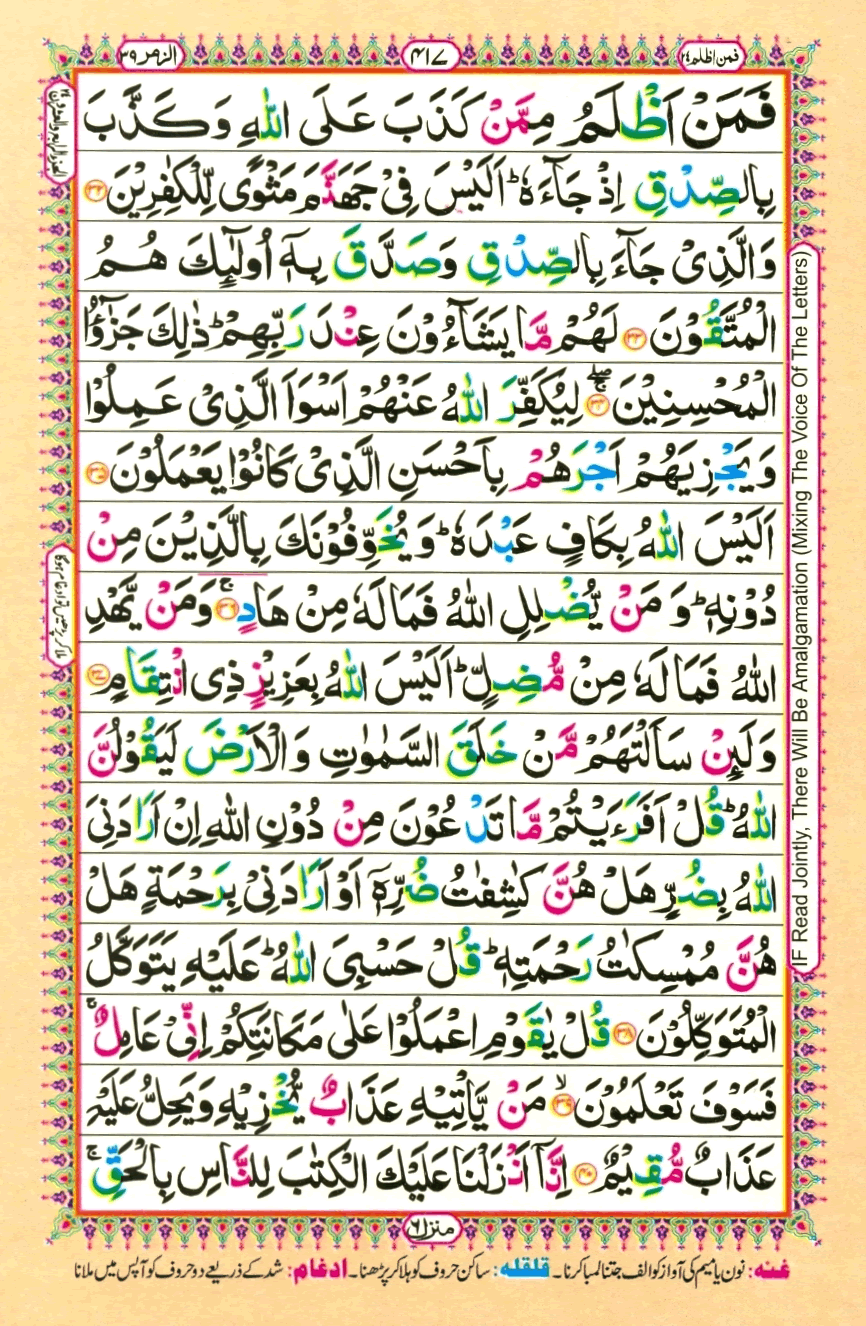 فمن اظلم ۲۴
۴۱۷
الزمر ۳۹
فَمَنْ اَظْلَمُ مِمَّنْ كَذَبَ عَلَى اللّٰهِ وَ كَذَّبَ
بِالصِّدْقِ اِذْ جَآءَهٗ ؕ اَلَیْسَ فِیْ جَهَنَّمَ مَثْوًی لِّلْكٰفِرِیْنَ ۳۲
وَالَّذِیْ جَآءَ بِالصِّدْقِ وَصَدَّقَ بِهٖۤ اُولٰٓىِٕكَ هُمُ
الْمُتَّقُوْنَ ۳۳ لَهُمْ مَّا یَشَآءُوْنَ عِنْدَ رَبِّهِمْ ؕ ذٰلِكَ جَزٰٓؤُا
الْمُحْسِنِیْنَ ۳۴ ۚۖ لِیُكَفِّرَ اللّٰهُ عَنْهُمْ اَسْوَاَ الَّذِیْ عَمِلُوْا
وَیَجْزِیَهُمْ اَجْرَهُمْ بِاَحْسَنِ الَّذِیْ كَانُوْا یَعْمَلُوْنَ ۳۵
اَلَیْسَ اللّٰهُ بِكَافٍ عَبْدَهٗ ؕ وَیُخَوِّفُوْنَكَ بِالَّذِیْنَ مِنْ
دُوْنِهٖ ؕ وَ مَنْ یُّضْلِلِ اللّٰهُ فَمَا لَهٗ مِنْ هَادٍ ۳۶ ۚ وَمَنْ یَّهْدِ
اللّٰهُ فَمَا لَهٗ مِنْ مُّضِلٍّ ؕ اَلَیْسَ اللّٰهُ بِعَزِیْزٍ ذِی انْتِقَامٍ ۳۷
وَلَىِٕنْ سَاَلْتَهُمْ مَّنْ خَلَقَ السَّمٰوٰتِ وَ الْاَرْضَ لَیَقُوْلُنَّ
اللّٰهُ ؕ قُلْ اَفَرَءَیْتُمْ مَّا تَدْعُوْنَ مِنْ دُوْنِ اللّٰهِ اِنْ اَرَادَنِیَ
اللّٰهُ بِضُرٍّ هَلْ هُنَّ كٰشِفٰتُ ضُرِّهٖۤ اَوْ اَرَادَنِیْ بِرَحْمَةٍ هَلْ
هُنَّ مُمْسِكٰتُ رَحْمَتِهٖ ؕ قُلْ حَسْبِیَ اللّٰهُ ؕ عَلَیْهِ یَتَوَكَّلُ
الْمُتَوَكِّلُوْنَ ۳۸ قُلْ یٰقَوْمِ اعْمَلُوْا عَلٰی مَكَانَتِكُمْ اِنِّیْ عَامِلٌ ۚ
فَسَوْفَ تَعْلَمُوْنَ ۳۹ ۙ مَنْ یَّاْتِیْهِ عَذَابٌ یُّخْزِیْهِ وَیَحِلُّ عَلَیْهِ
عَذَابٌ مُّقِیْمٌ ۴۰ اِنَّاۤ اَنْزَلْنَا عَلَیْكَ الْكِتٰبَ لِلنَّاسِ بِالْحَقِّ ۚ
منزل ۶
غنه: نون یا میم کی آواز کو الف جتنا لمبا کرنا۔ قلقله: ساکن حروف کو ہلا کر پڑھنا۔ ادغام: شد کے ذریعے دو حروف کو آپس میں ملانا
IF Read Jointly, There Will Be Amalgamation (Mixing The Voice Of The Letters)
ملا کر پڑھیں تو ادغام ہوگا